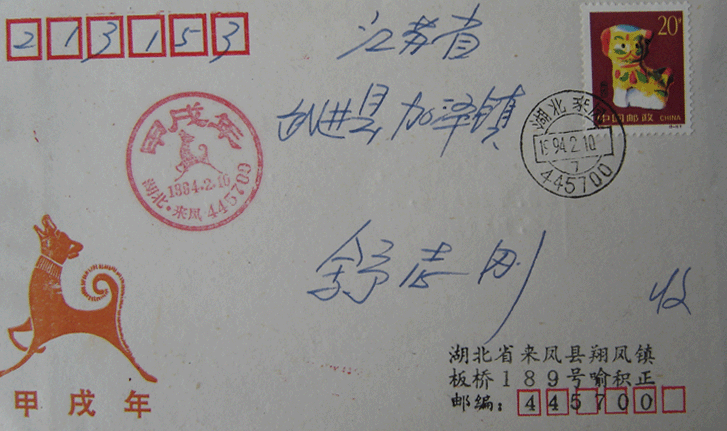 213153
江苏省
20分
中国邮政 CHINA
武进县加泽镇
湖北 来凤
1994.2.10
7
445700
甲戌年
1994.2.10
湖北·来凤 445700
舒志刚 收
甲戌年
湖北省来凤县翔凤镇
板桥189号喻积正
邮编:445700